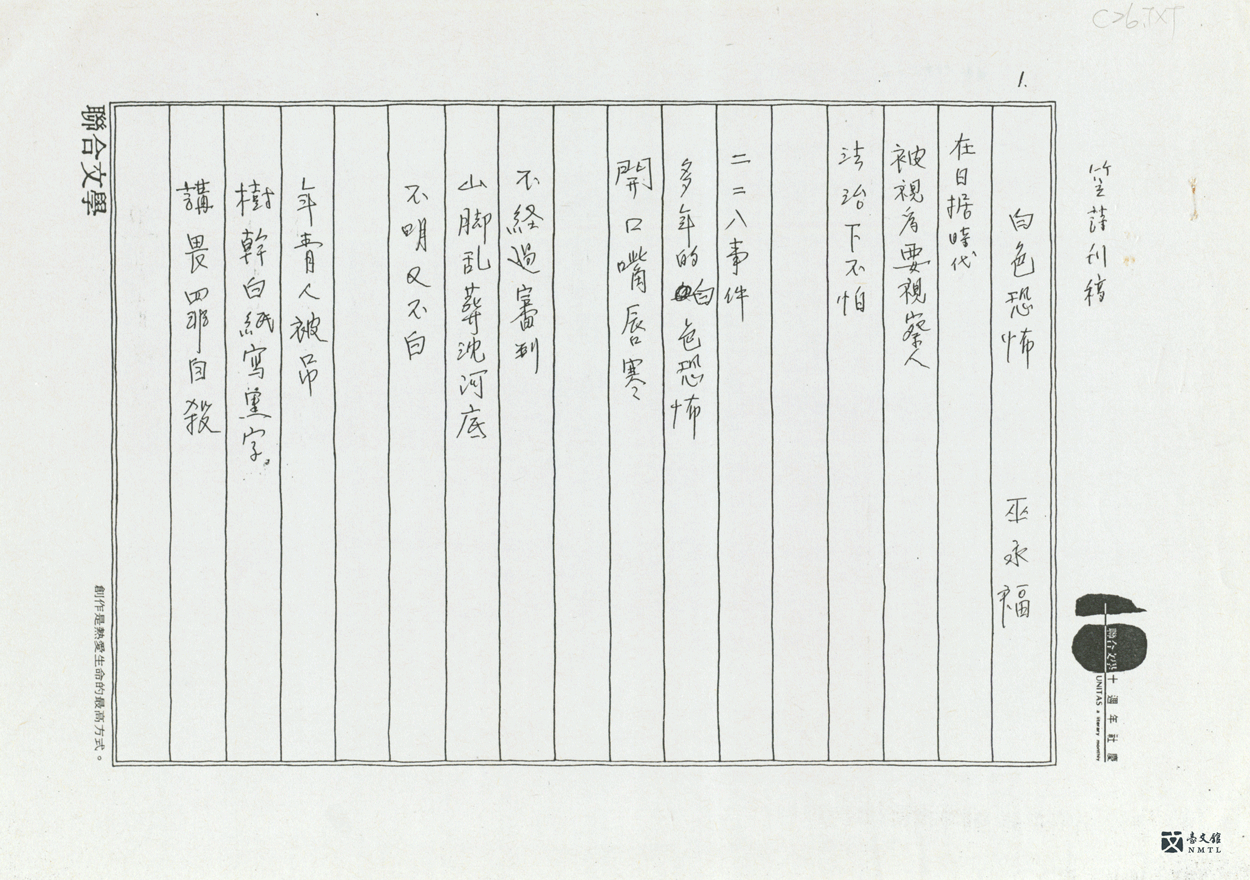 C26.TXT
1.
笠詩刊稿
白色恐怖 巫永福
在日据時代
被視為要視察人
法治下不怕
二二八事件
多年的白色恐怖
開口嘴唇寒
不経過審判
山脚乱葬沈河底
不明又不白
年青人被吊
樹幹白紙寫黑字。
講畏罪自殺
聯合文學
創作是熱愛生命的最高方式。
聯合文學十週年社慶
UNITAS a literary monthly
臺文館
NMTL